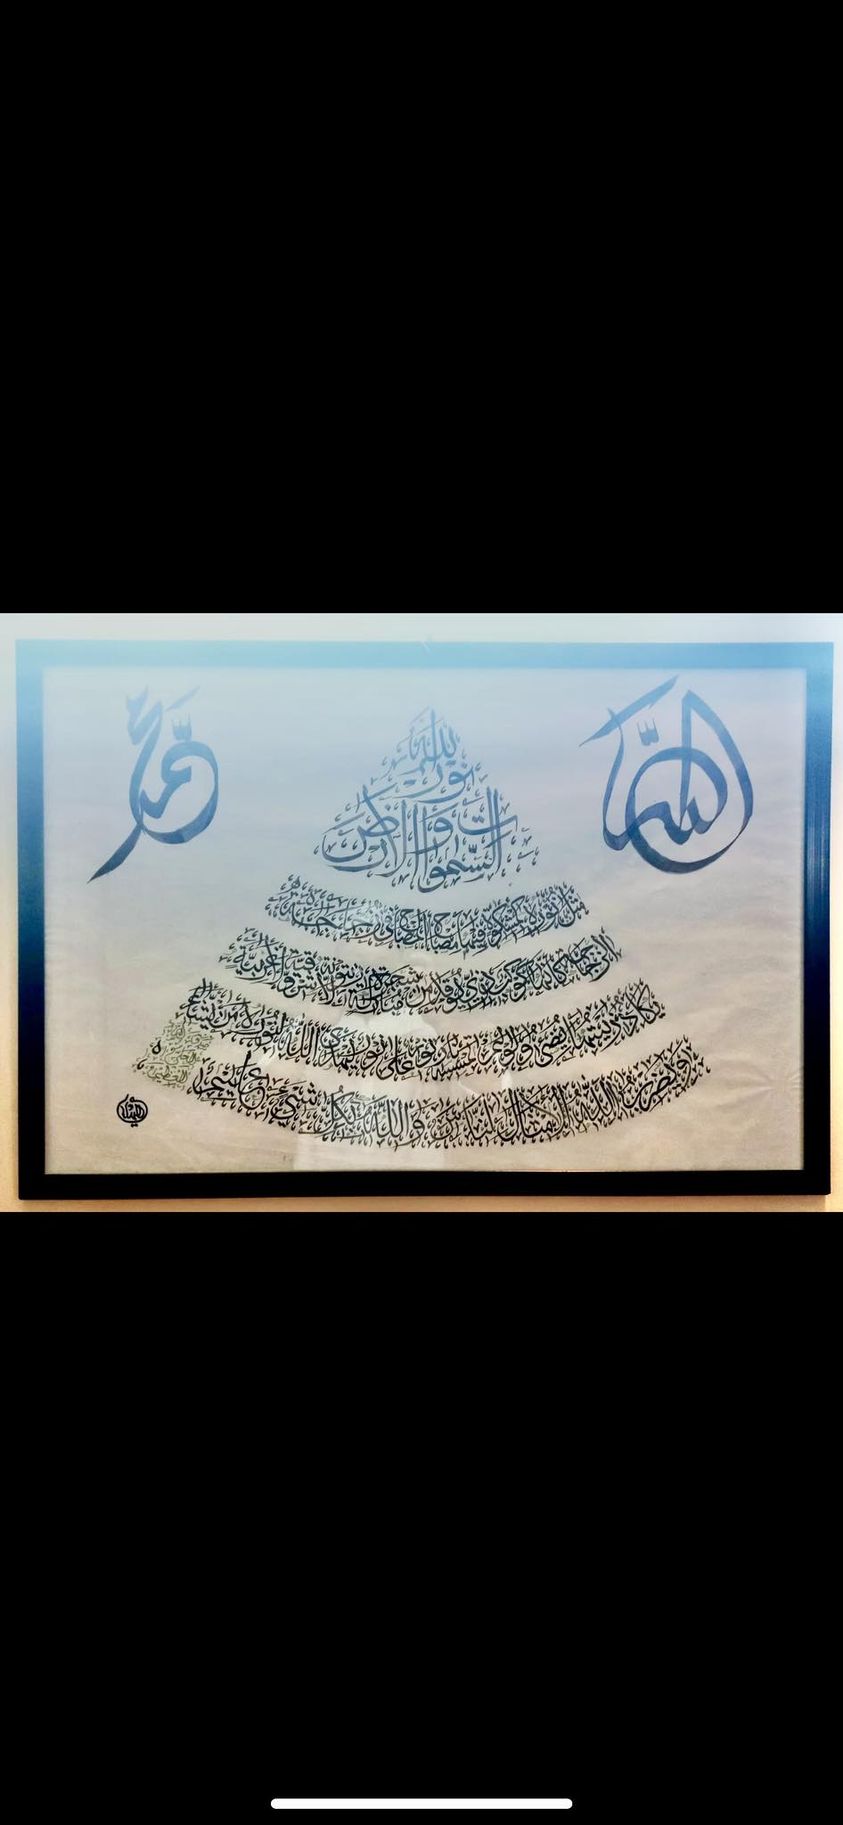 الله
محمد
الله
نور
السموات والارض
مثل نوره كمشكوة فيها مصباح المصباح في زجاجة
الزجاجة كانها كوكب دري يوقد من شجرة مباركة زيتونة لا شرقية ولا غربية
يكاد زيتها يضيء ولو لم تمسسه نار نور على نور يهدي الله لنوره من يشاء
ويضرب الله الامثال للناس والله بكل شيء عليم